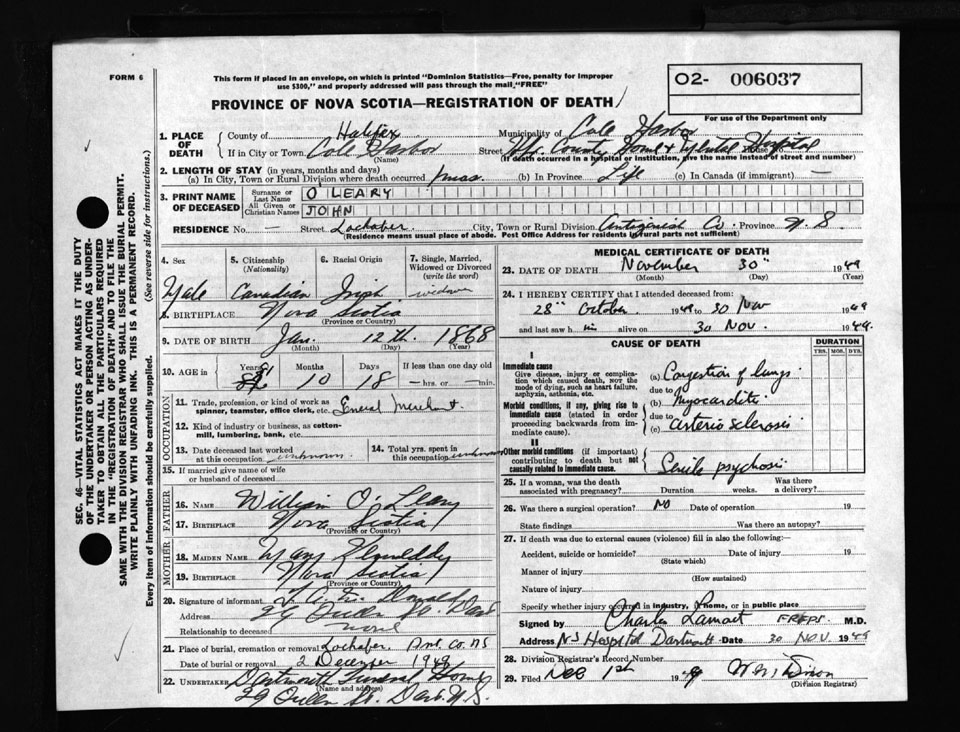 FORM 6
This form if placed in an envelope, on which is printed "Dominion Statistics—Free, penalty for improper
use $300," and properly addressed will pass through the mail, "FREE"
O2- 006037
PROVINCE OF NOVA SCOTIA—REGISTRATION OF DEATH
For use of the Department only
1. PLACE OF DEATH
County of Halifax Municipality of Cole Harbor
If in City or Town Cole Harbor Street Hfx. County Home & Mental Hospital House No.
(Name) (If death occurred in a hospital or institution, give the name instead of street and number)
2. LENGTH OF STAY (in years, months and days)
(a) In City, Town or Rural Division where death occurred (b) In Province Life (c) In Canada (if immigrant) —
3. PRINT NAME OF DECEASED
Surname or Last Name O'LEARY
All Given or Christian Names JOHN
RESIDENCE No. — Street Lochaber City, Town or Rural Division Antigonish Co. Province N.S
(Residence means usual place of abode. Post Office Address for residents in rural parts not sufficient)
4. Sex
5. Citizenship (Nationality)
6. Racial Origin
7. Single, Married, Widowed or Divorced (write the word)
Male Canadian Irish widower
8. BIRTHPLACE Nova Scotia
(Province or Country)
9. DATE OF BIRTH Jan. 12th. 1868
(Month) (Day) (Year)
10. AGE in Years Months Days If less than one day old
10 18 —hrs. or —min.
OCCUPATION
11. Trade, profession, or kind of work as
spinner, teamster, office clerk, etc. General Merchant
12. Kind of industry or business, as cotton-
mill, lumbering, bank, etc.
13. Date deceased last worked
at this occupation unknown
14. Total yrs. spent in
this occupation unknown
15. If married give name of wife
or husband of deceased
FATHER
16. Name William O'Leary
17. Birthplace Nova Scotia
(Province or Country)
MOTHER
18. Maiden Name Mary
19. Birthplace Nova Scotia
(Province or Country)
20. Signature of informant
Address 29 Queen St. Dart
Relationship to deceased none
21. Place of burial, cremation or removal Lochaber, Ant. Co. NS
Date of burial or removal 2 December 1949
22. UNDERTAKER Dartmouth Funeral Home
(Name and address)
29 Queen St. Dart. N.S.
MEDICAL CERTIFICATE OF DEATH
23. DATE OF DEATH November 30th 1949
(Month) (Day) (Year)
24. I HEREBY CERTIFY that I attended deceased from:
28th October 1949 to 30 Nov 1949
and last saw him alive on 30 Nov. 1949.
CAUSE OF DEATH
DURATION
YRS. MOS. DYS.
I
Immediate cause
Give disease, injury or complica-
tion which caused death, NOT the
mode of dying, such as heart failure,
asphyxia, asthenia, etc.
(a) Congestion of lungs
due to
Morbid conditions, if any, giving rise to
immediate cause (stated in order
proceeding backwards from im-
mediate cause).
(b) Myocarditis
due to
(c) arterio sclerosis
II
Other morbid conditions (if important)
contributing to death but not
causally related to immediate cause.
Senile psychosis
25. If a woman, was the death
associated with pregnancy? Duration weeks. Was there
a delivery?
26. Was there a surgical operation? No Date of operation 19
State findings Was there an autopsy?
27. If death was due to external causes (violence) fill in also the following:—
Accident, suicide or homicide? Date of injury 19
(State which)
Manner of injury
(How sustained)
Nature of injury
Specify whether injury occurred in industry, home, or in public place
Signed by Charles Lamont M.D.
Address NS Hospital Dartmouth Date 30 NOV. 1949
28. Division Registrar's Record Number
29. Filed Dec 1st 1949
(Division Registrar)
SEC. 46—VITAL STATISTICS ACT MAKES IT THE DUTY
OF THE UNDERTAKER OR PERSON ACTING AS UNDER-
TAKER TO OBTAIN ALL THE PARTICULARS REQUIRED
IN THE "REGISTRATION OF DEATH" AND TO FILE THE
SAME WITH THE DIVISION REGISTRAR WHO SHALL ISSUE THE BURIAL PERMIT.
WRITE PLAINLY WITH UNFADING INK. THIS IS A PERMANENT RECORD.
Every item of information should be carefully supplied. (See reverse side for instructions.)